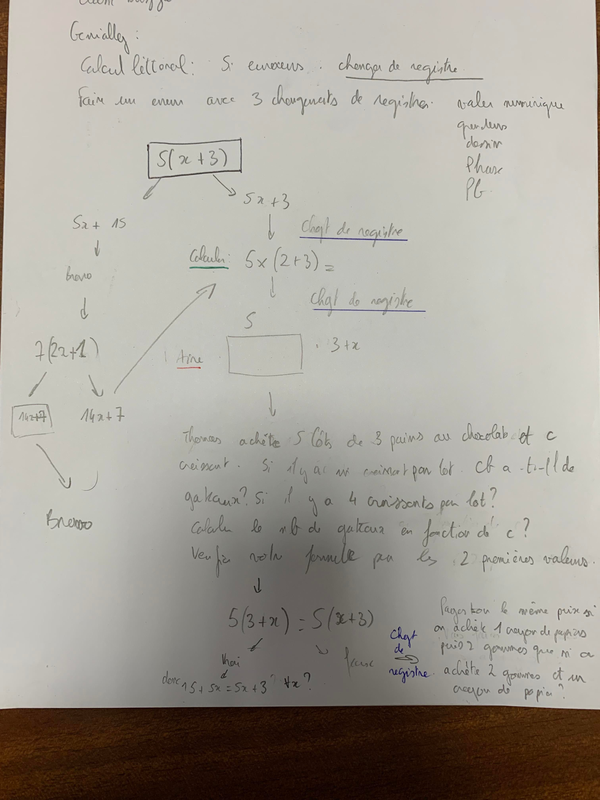 Genialley :
Calcul littoral : Si erreurs . changer de registre
Faire un erreur avec 3 changements de registres. valeur numérique
dessin
Phrase
Pb.
5(x+3)
5x + 15
5x+3
Chgt de registre
bravo
Calculer : 5x(2+3) =
Chgt de registre
5
7(2x+1)
3+x
Aire
14x+7
14x+7
Thomas achète 5 lots de 3 pains au chocolat et c
croissant. Si il y a un croissant par lot. Cb a-t-il de
gateaux? Si il y a 4 croissants par lot?
Calculer le nb de gateaux en fonction de c?
Verfie votre formule par les 2 premières valeurs.
Bravo
5(3+x) = 5(x+3)
Vrai
Faux
donc 15+5x = 5x+3? ∀x?
Chgt
de
registre.
le même prix si
on achète 1 crayon de papiers
puis 2 gommes que si on
achète 2 gommes et un
crayon de papier?